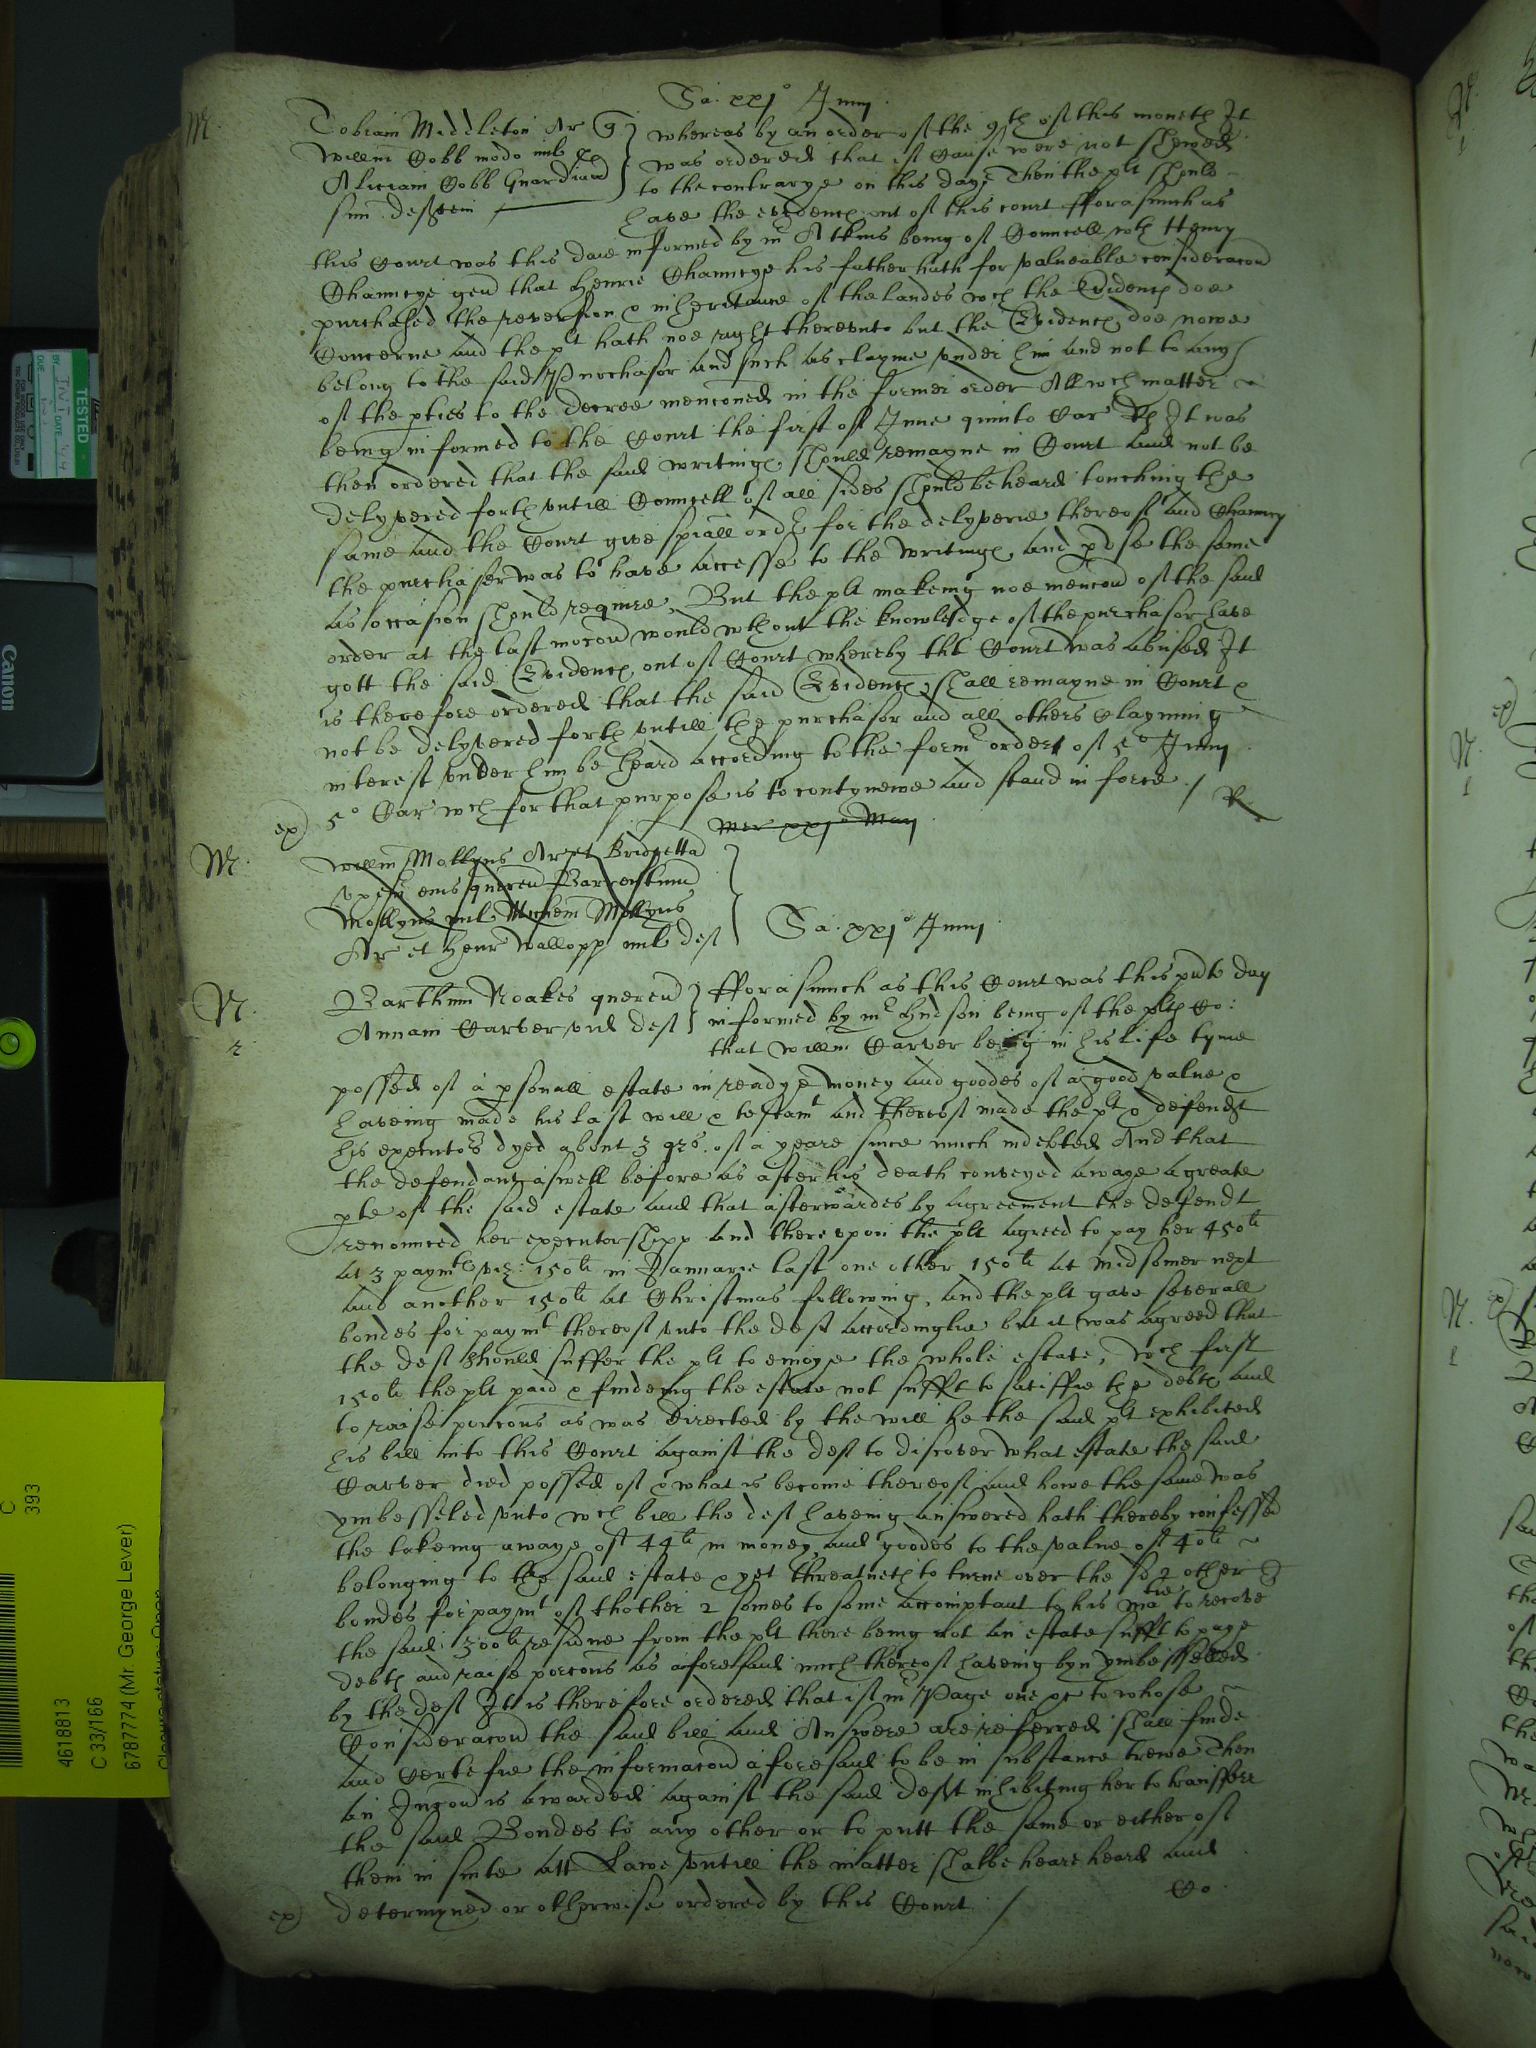 Sa. xxj° Junij
M.
Tobiam Middleton Ar q
Willm Cobb modo mil p
Aliciam Cobb Guardian
suu deftem
whereas by an order of the 9th of this moneth It
was ordered that if Cause were not shewed
to the contrarye on this daye Then the plt should
have the evidence out of this court fforasmuch as
this Court was this daie informed by mr Atkins being of Councell wth Henry
Chauncye gen that Henrie Chauncye his father hath for valueable consideracon
purchased the reversion & inheritance of the landes wch the Evidence doe
Concerne and the plt hath noe right therevnto but the Evidence doe nowe
belong to the said Purchasor and such as clayme vnder him and not to any
of the pties to the decree menconed in the former order All wch matter
being informed to the Court the first of June quinto Car R It was
then ordered that the said writinge should remayne in Court and not be
delyvered forth vntill Councell of all sides should be heard touching the
same and the Court give spiall order for the delyverie thereof and Chauncy
the purchaser was to have accesse to the writinge and pvse the same
as occasion should require, But the plt makeing noe mencon of the said
order at the last mocon would wthout the knowledge of the purchasor have
gott the said Evidence out of Court whereby the Court was abused It
is therefore ordered that the said Evidence shall remayne in Court &
not be delyvered forth vntill the purchasor and all others Clayming
interest vnder him be heard according to the form order of 5° Junij
5° Car wch for that purpose is to contynewe and stand in force / R
ex)
Mer xxj° Maij
M.
Willm Mollyns Ar et Bridgetta
vxem eius queren
Mollyns mil Michem Mollyns
Ar et Henr Wallopp mil def
Sa. xxj° Junij
N.
2
Barthum Noakes queren
Annam Carver vid def
fforasmuch as this Court was this pnte day
informed by mr Hudson being of the plts Co:
that Willm Carver being in his life tyme
possed of a psonall estate in readye money and goodes of a good value &
haveing made his last will & testamt and thereof made the plt & defendt
his executors dyed about 3 qrs. of a yeare since much indebted And that
the defendant aswell before as after his death conveyed awaye a greate
pte of the said estate and that afterwardes by agreement the defendt
renounced her executorshipp and therevpon the plt agreed to pay her 450li
at 3 paymts viz: 150li in Januarie last one other 150li at Midsomer next
and another 150li at Christmas following, and the plt gave severall
bondes for paymt thereof vnto the deft accordinglie but it was agreed that
the deft should suffer the plt to enioye the whole estate, wch first
150li the plt paid & findeing the estate not sufft to satisfie the debte and
to raise porcons as was directed by the will he the said plt exhibited
his bill into this Court against the deft to discover what estate the said
Carver died possed of & what is become thereof and howe the same was
ymbesseled vnto wch bill the deft haveing answered hath thereby confessed
the takeing awaye of 44li in money and goodes to the value of 40li
belonging to the said estate & yet threatneth to turne over the sd 2 other
bondes for paymt of thother 2 somes to some accomptant to his matie to recove
the said 300li residue from the plt there being not an estate suffit to paye
debte and raise porcons as aforesaid much thereof haveing byn ymbesselled
by the deft It is therefore ordered that if mr Page one &c to whose
Consideracon the said bill and Answere are referred shall finde
and Certefie the informacon aforesaid to be in substance trewe Then
an Iniuncon is awarded against the said deft inhibiting her to transferr
the said Bondes to any other or to putt the same or either of
them in suite att Lawe vntill the matter shalbe heare heard and
determyned or otherwise ordered by this Court /
Co
ex)
TESTED
Canon
C
393
4618813
C 33/166
6787774 (Mr. George Lever)